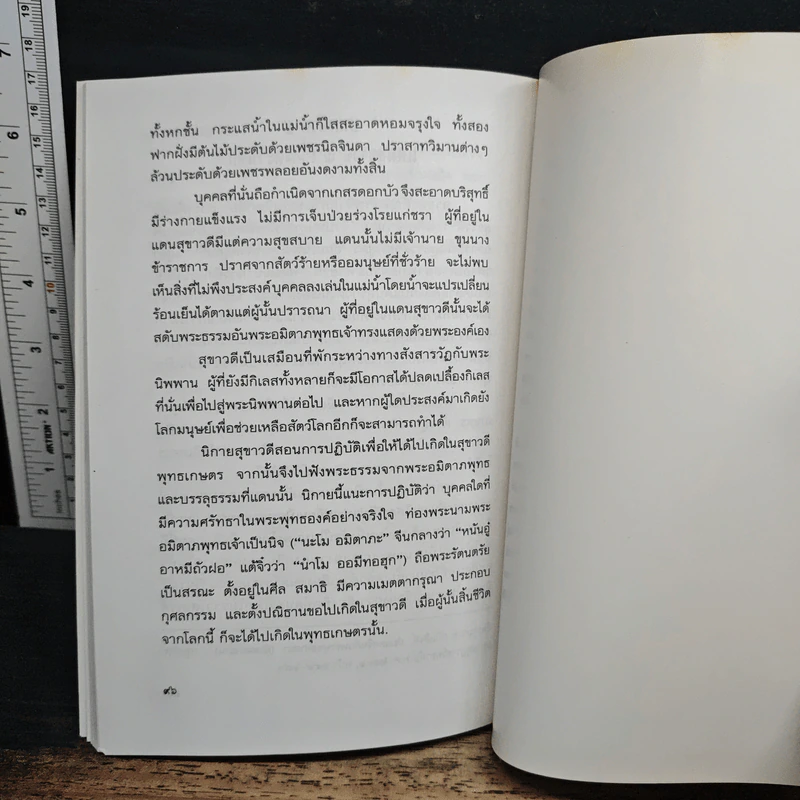 ทั้งหกชั้น กระแสน้ำในแม่น้ำก็ใสสะอาดหอมจรุงใจ ทั้งสอง
ฟากฝั่งมีต้นไม้ประดับด้วยเพชรนิลจินดา ปราสาทวิมานต่างๆ
ล้วนประดับด้วยเพชรพลอยอันงดงามทั้งสิ้น
บุคคลที่นั่นถือกำเนิดจากเกสรดอกบัว จึงสะอาดบริสุทธิ์
มีร่างกายแข็งแรง ไม่มีการเจ็บป่วยร่วงโรยแก่ชรา ผู้ที่อยู่ใน
แดนสุขาวดีมีแต่ความสุขสบาย แดนนั้นไม่มีเจ้านาย ขุนนาง
ข้าราชการ ปราศจากสัตว์ร้ายหรืออมนุษย์ที่ชั่วร้าย จะไม่พบ
เห็นสิ่งที่ไม่พึงประสงค์บุคคลลงเล่นในแม่น้ำโดยน้ำจะแปรเปลี่ยน
ร้อนเย็นได้ตามแต่ผู้นั้นปรารถนา ผู้ที่อยู่ในแดนสุขาวดีนั้นจะได้
สดับพระธรรมอันพระอมิตาภพุทธเจ้าทรงแสดงด้วยพระองค์เอง
สุขาวดีเป็นเสมือนที่พักระหว่างทางสังสารวัฏกับพระ
นิพพาน ผู้ที่ยังมีกิเลสทั้งหลายก็จะมีโอกาสได้ปลดเปลื้องกิเลส
ที่นั่นเพื่อไปสู่พระนิพพานต่อไป และหากผู้ใดประสงค์มาเกิดยัง
โลกมนุษย์เพื่อช่วยเหลือสัตว์โลกอีกก็จะสามารถทำได้
นิกายสุขาวดีสอนการปฏิบัติเพื่อให้ได้ไปเกิดในสุขาวดี
พุทธเกษตร จากนั้นจึงไปฟังพระธรรมจากพระอมิตาภพุทธ
และบรรลุธรรมที่แดนนั้น นิกายนี้แนะการปฏิบัติว่า บุคคลใดที่
มีความศรัทธาในพระพุทธองค์อย่างจริงใจ ท่องพระนามพระ
อมิตาภพุทธเจ้าเป็นนิจ ("นะโม อมิตาภะ" จีนกลางว่า "หนันอู๋
อาหมีถัวฝอ" แต้จิ๋วว่า "นำโม ออมีทอฮุก") ถือพระรัตนตรัย
เป็นสรณะ ตั้งอยู่ในศีล สมาธิ มีความเมตตากรุณา ประกอบ
กุศลกรรม และตั้งปณิธานขอไปเกิดในสุขาวดี เมื่อผู้นั้นสิ้นชีวิต
จากโลกนี้ ก็จะได้ไปเกิดในพุทธเกษตรนั้น.
๙๖